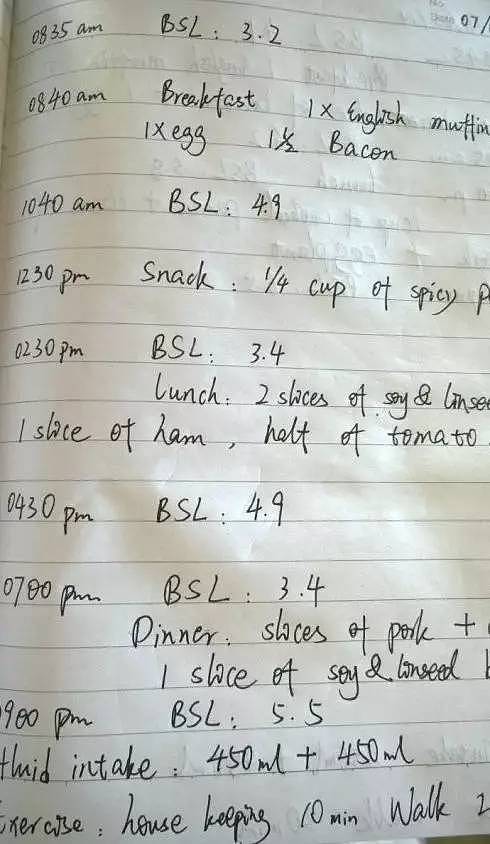 07/
0835 am BSL: 3.2
0840 am Breakfast 1x English muffin
1x egg 1½ Bacon
1040 am BSL: 4.9
1230 pm Snack: 1/4 cup of spicy
0230 pm BSL: 3.4
Lunch: 2 slices of soy & linsee
1 slice of ham, half of tomato
0430 pm BSL: 4.9
0700 pm BSL: 3.4
Dinner: slices of pork +
1 slice of soy & linseed
0900 pm BSL: 5.5
fluid intake: 450ml + 450ml
Exercise: house keeping 10 min Walk